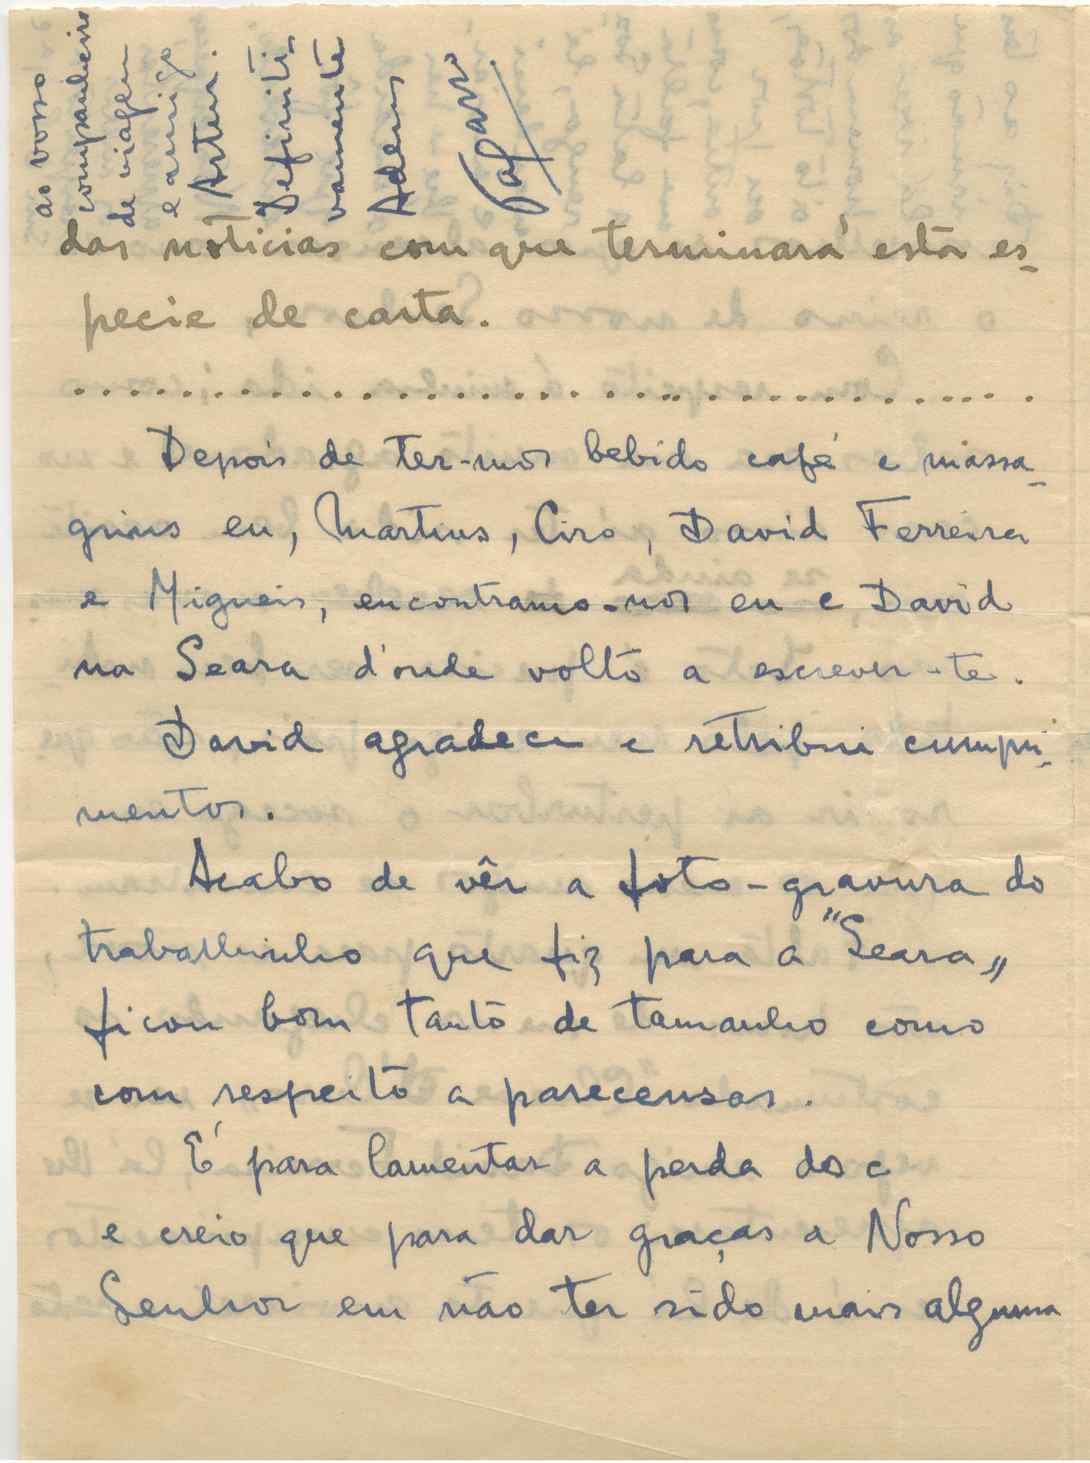 ao vosso
companheiro
de viagem
e amigo
Artur.
Definiti-
vamente
Adeus
das nóticias com que terminará esta es-
pecie de carta.
Depois de ter-mos bebido café e massa-
grinos eu, Martins, Ciro, David Ferreira
e Migueis, encontramo-nos eu e David
na Seara d'onde volto a escrever-te.
David agradece e retribui cumpri-
mentos.
Acabo de vêr a foto-gravura do
trabalhinho que fiz para a "Seara"
ficou bom tanto de tamanho como
com respeito a parecensas.
É para lamentar a perda dos c
e creio que para dar graças a Nosso
Senhor em não ter sido mais alguma